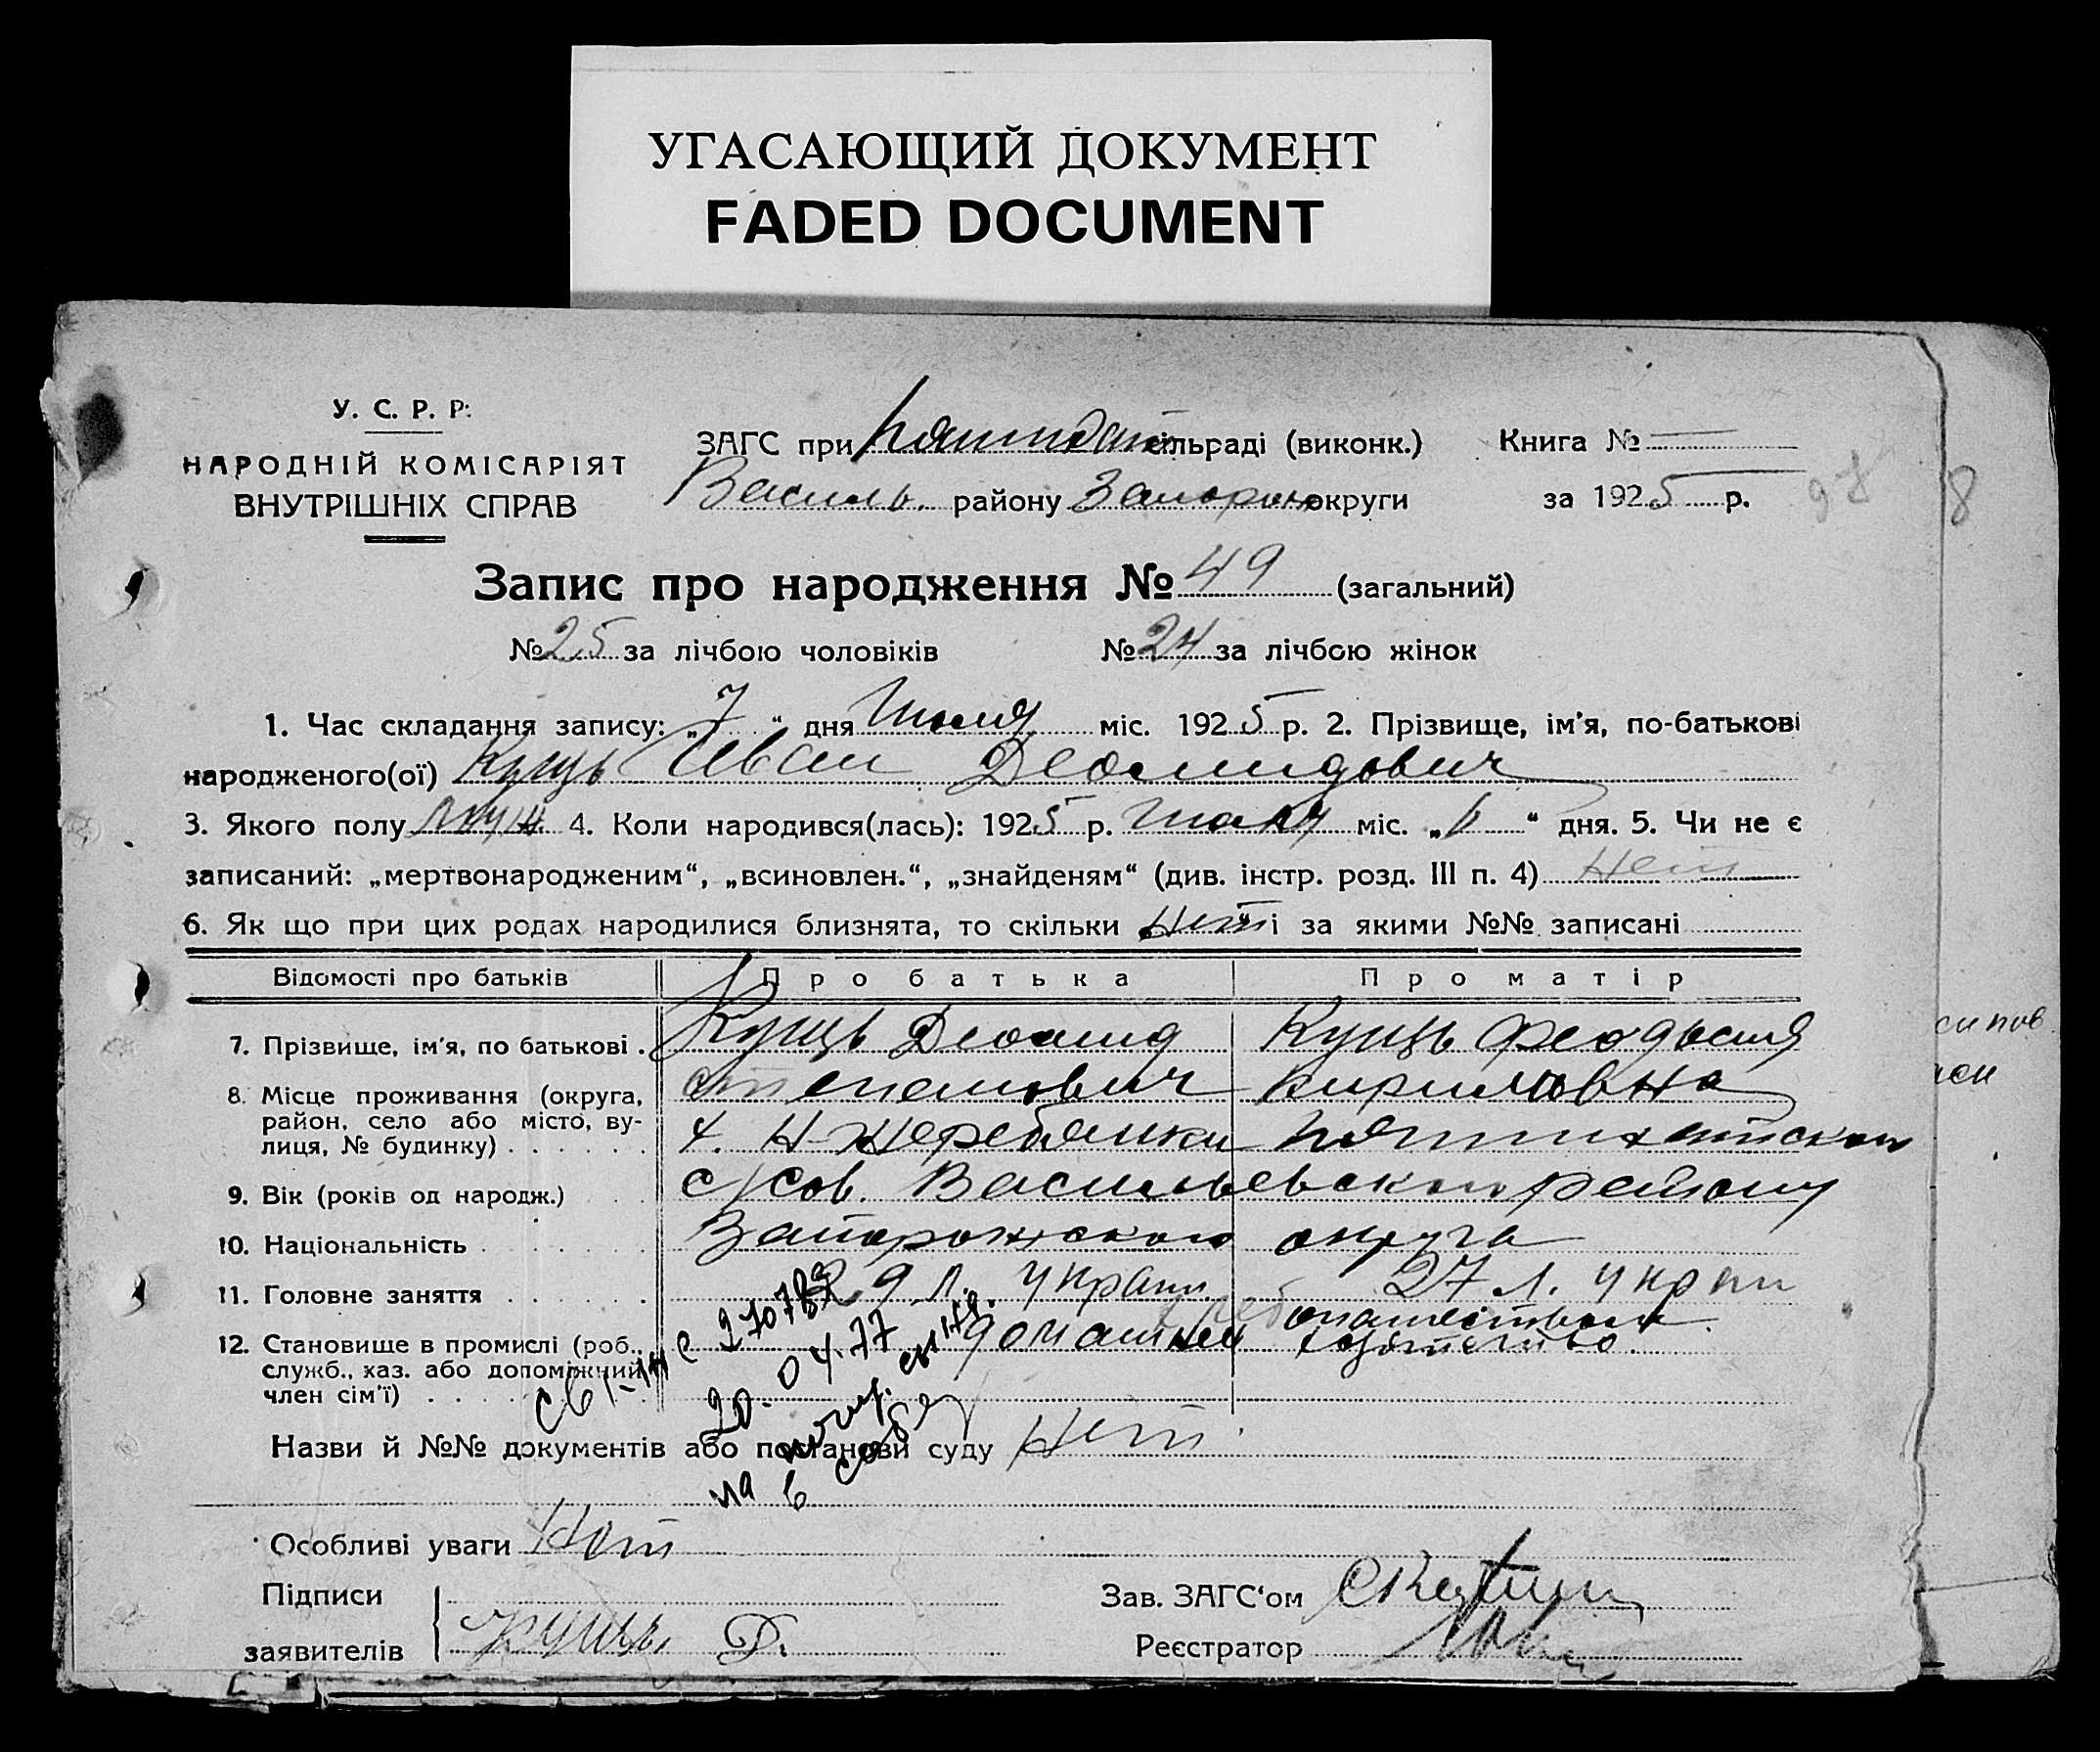 УГАСАЮЩИЙ ДОКУМЕНТ
FADED DOCUMENT
У. С. Р. Р.
НАРОДНІЙ КОМІСАРІЯТ
ВНУТРІШНІХ СПРАВ
ЗАГС при сільраді (виконк.)
Василь. району Запорож округи
Книга № —
за 1925 р.
98
8
Запис про народження № 49 (загальний)
№ 25 за лічбою чоловіків № 24 за лічбою жінок
1. Час складання запису: „7“ дня міс. 1925 р. 2. Прізвище, ім’я, по-батькові
народженого(ої) Куць Иван Деомидович
3. Якого полу муж. 4. Коли народився(лась): 1925 р. міс. „6“ дня. 5. Чи не є
записаний: „мертвонародженим“, „всиновлен.“, „знайденям“ (див. інстр. розд. III п. 4) Нет
6. Як що при цих родах народилися близнята, то скільки Нет і за якими №№ записані
Відомості про батьків Про батька Про матір
7. Прізвище, ім’я, по батькові . Куць Деомид Куць Феодосия
8. Місце проживання (округа, Степанович Кириловна
район, село або місто, ву-
лиця, № будинку) . . . . . . х. Н-Жеребянки
9. Вік (років од народж.) с/сов. Васильевского району
10. Національність . Запорожского округа
11. Головне заняття . . . . . . 29 л. украин. 27 л. украи
12. Становище в промислі (роб., домашнее
служб., хаз. або допоміжний
член сім’ї) . . . .
20.04.77
Назви й №№ документів або постанови суду Нет
Особливі уваги Нет
Підписи
заявителів Куць Д.
Зав. ЗАГС‘ом
Реєстратор